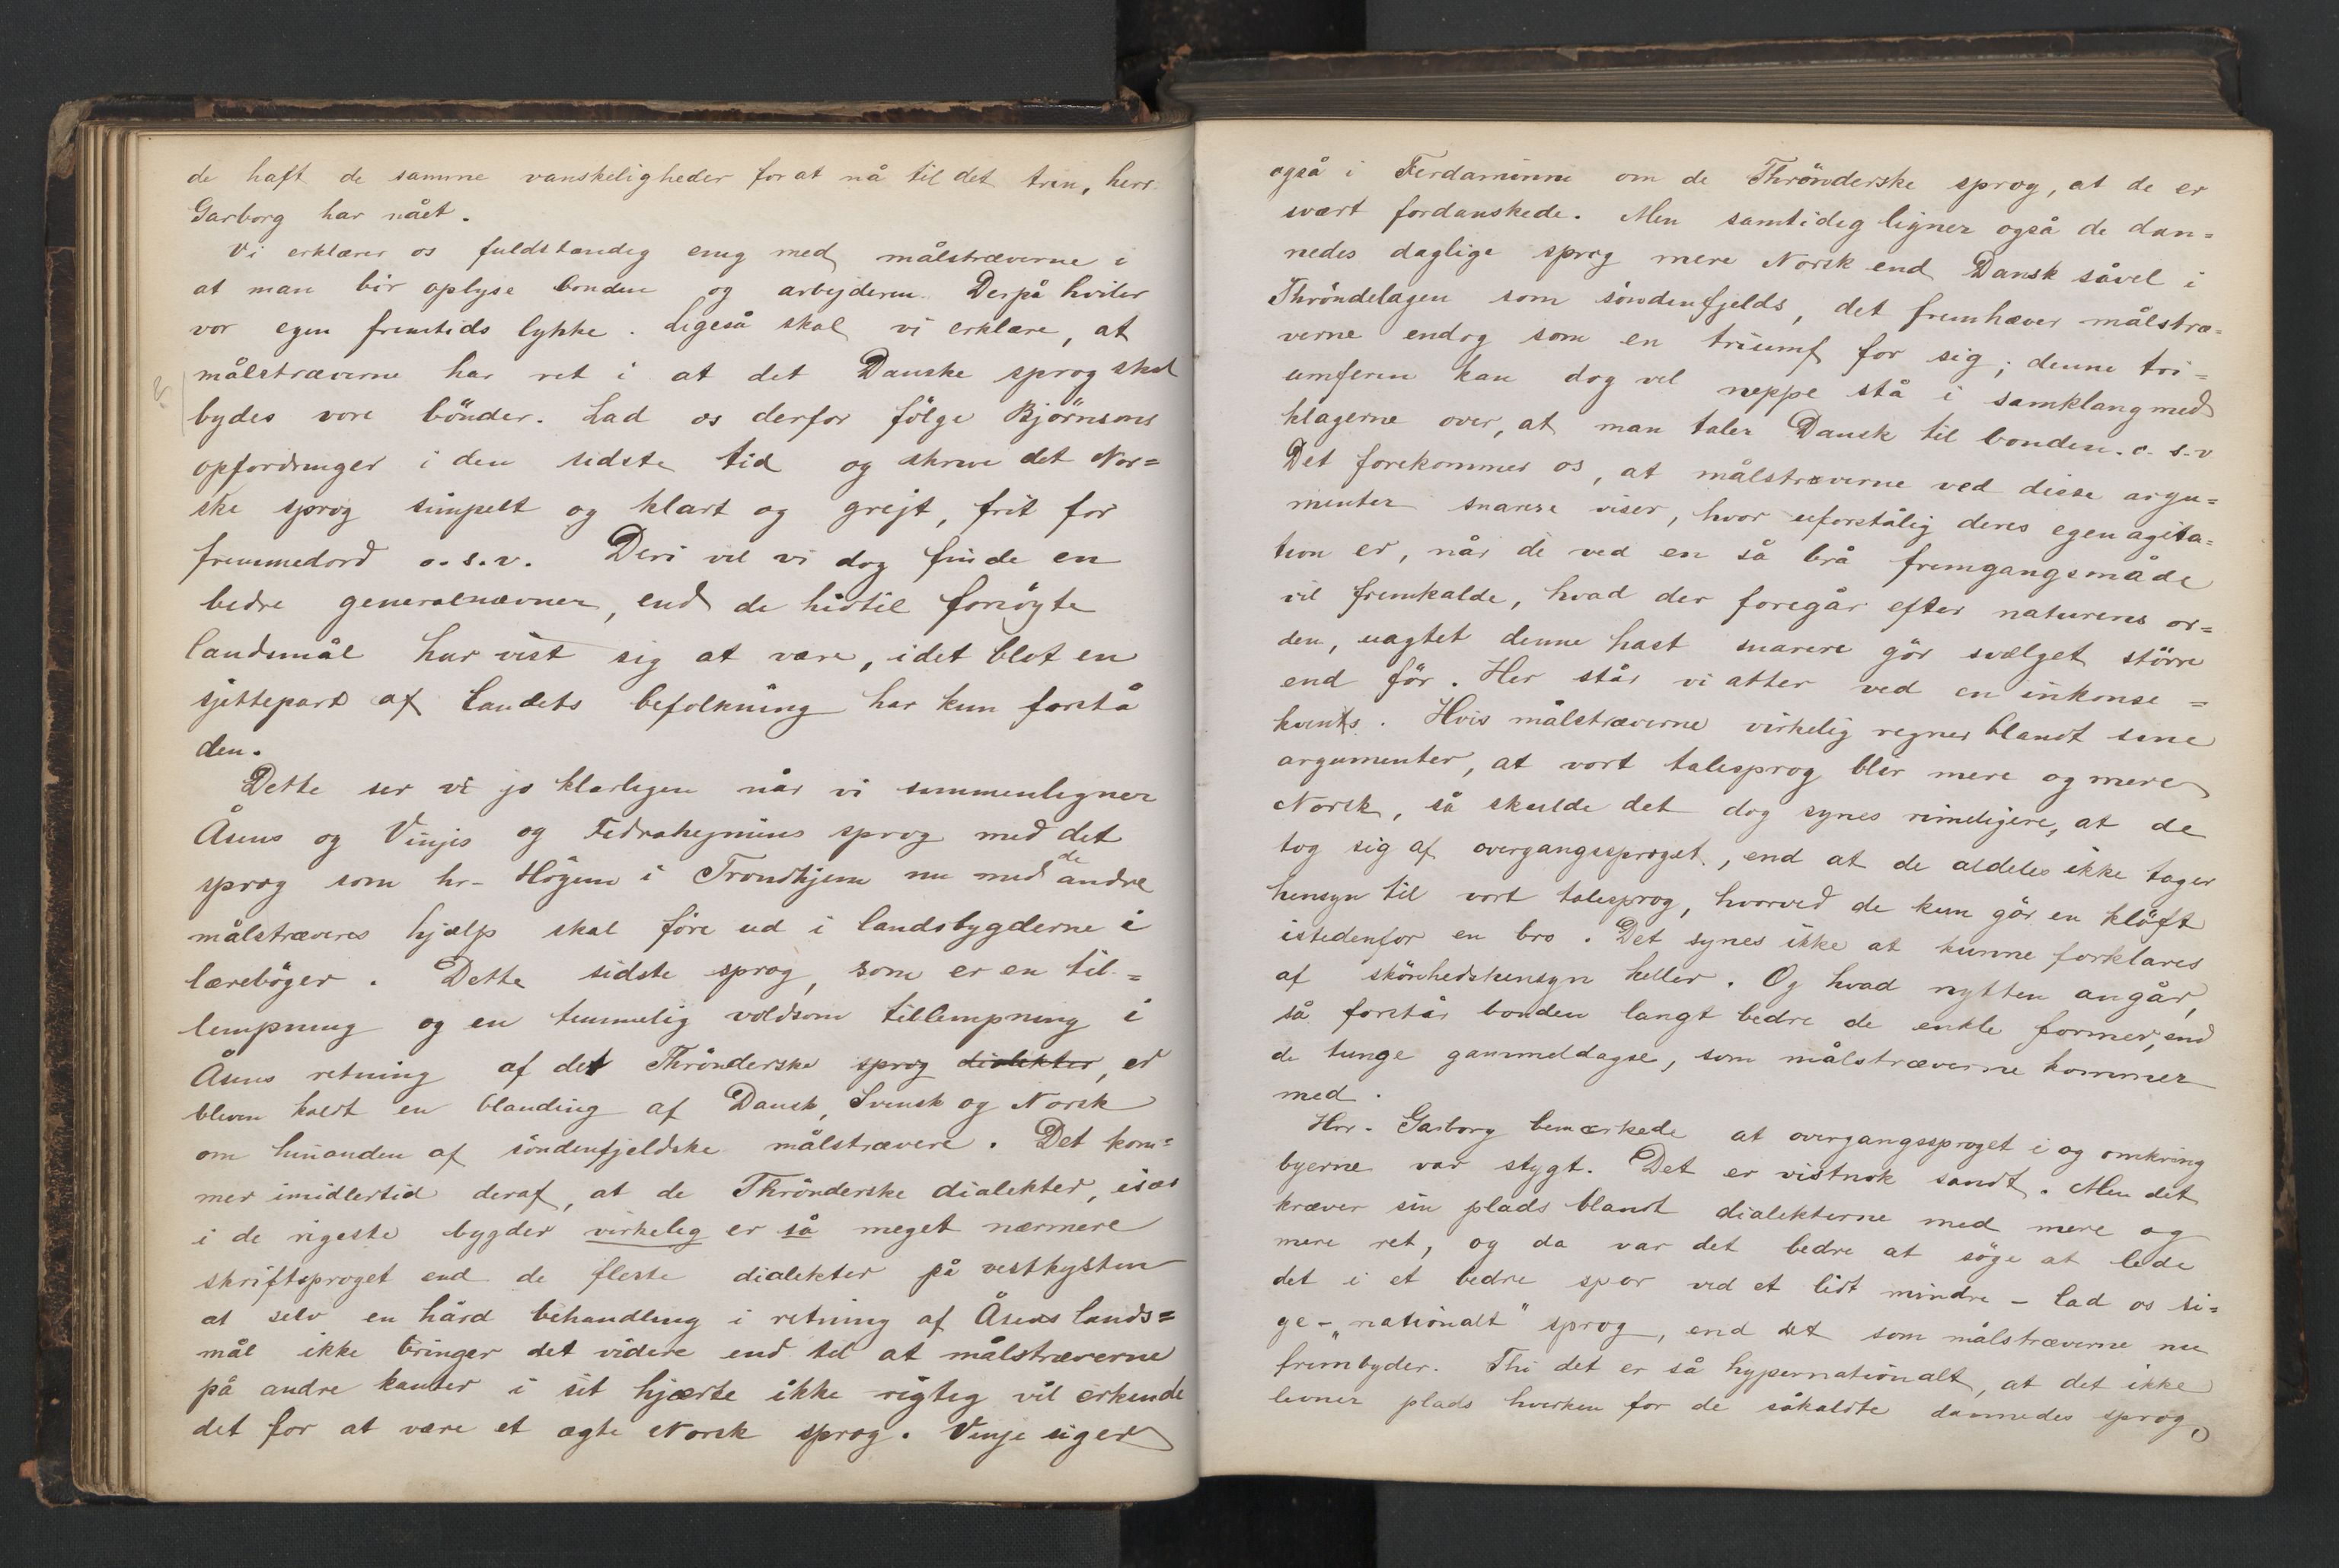 de haft de samme vanskeligheder for at nå til det trin, herr
Garborg har nået.
Vi erklærer os fuldstændig enig med målstræverne i
at man bör oplyse bonden og arbejderen. Derpå hviler
vor egen fremtids lykke. Ligeså skal vi erklære, at
målstræverne har ret i at det Danske sprog skal
bydes vore bönder. Lad os derfor fölge Björnsons
opfordringer i den sidste tid og skrive det Nor=
ske sprog simpelt og klart og grejt, frit for
fremmedord o.s.v. Deri vil vi dog finde en
bedre generalnævner, end de hidtil forsögte
landsmål har vist sig at være, idet blot en
sjettepart af landets befolkning har kun forstå
den.
Dette ser vi jo klarligen når vi sammenligner
Åsens og Vinjes og Fedraheimens sprog med det
sprog som hr. Högum i Trondhjem nu med de andre
målstræveres hjælp skal före ud i landsbygderne i
lærebøger. Dette sidste sprog, som er en til=
lempning og en temmelig voldsom tillempning i
Åsens retning af det Thrönderske sprog dialekter, er
bleven kaldt en blanding af Dansk, Svensk og Norsk
om hinanden af söndenfjeldske målstrævere. Det kom=
mer imidlertid deraf, at de Thrönderske dialekter, især
i de rigeste bygder virkelig er så meget nærmere
skriftsproget end de fleste dialekter på vestkysten
at selv en hård behandling i retning af Åsens lands=
mål ikke bringer det videre end til at målstræverne
på andre kanter i sit hjærte ikke rigtig vil erkende
det for at være et ægte Norsk sprog. Vinje siger
også i Ferdaminni om de Thrönderske sprog, at de er
svært fordanskede. Men samtidig ligner også de dan=
nedes daglige sprog mere Norsk end Dansk såvel i
Thröndelagen som söndenfjelds, det fremhæver målstræ=
verne endog som en triumf for sig; denne tri=
umferen kan dog vel neppe stå i samklang med
klagerne over, at man taler Dansk til bonden. o. s. v
Det forekommer os, at målstræverne ved disse argu=
menter snarere viser, hvor uforståelig deres egen agita=
tion er, når de ved en så brå fremgangsmåde
vil fremkalde, hvad der foregår efter naturens or=
den, uagtet denne hast snarere gör svælget större
end för. Her står vi atter ved en inkonse=
kvents. Hvis målstræverne virkelig regner blandt sine
argumenter, at vort talesprog blir mere og mere
Norsk, så skulde det dog synes rimeligere, at de
tog sig af overgangssproget, end at de aldeles ikke tager
hensyn til vort talesprog, hvorved de kun gör en klöft
istedenfor en bro. Det synes ikke at kunne forklares
af skönhedshensyn heller. Og hvad nytten angår,
så forstår bonden langt bedre de enkle former, end
de tunge gammeldagse, som målstræverne kommer
med.
Hrr. Garborg bemærkede at overgangssproget i og omkring
byerne var stygt. Det er vistnok sandt. Men det
kræver sin plads blandt dialekterne med mere og
mere ret, og da var det bedre at söge at lede
det i et bedre spor ved et lidt mindre – lad os si=
ge – „nationalt" sprog, end det som målstræverne nu
frembyder. Thi det er så hypernationalt, at det ikke
levner plads hverken for de såkaldte dannedes sprog,